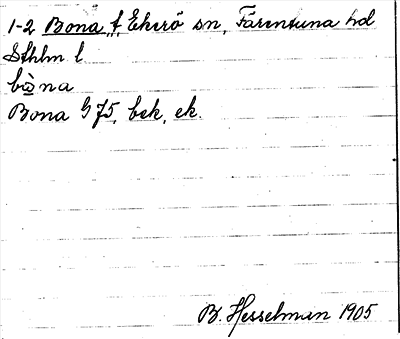 1-2 Bona, t. Ekerö sn, Färentuna hd
Sthlm l
bò̲na
Bona G 75, bek, ek.
B. Hesselman 1905